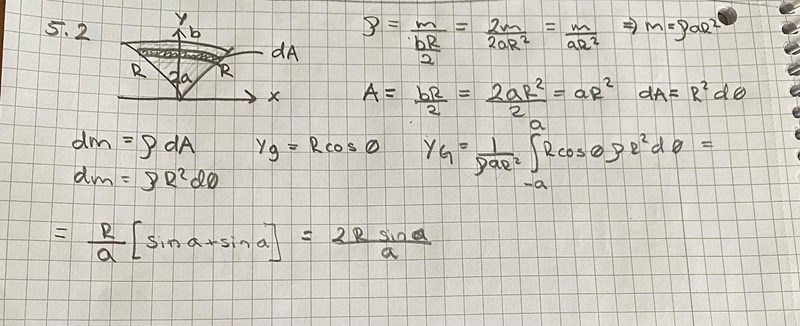 5.2
y
b
dA
R 2a R
x
ρ = m / (bR/2) = 2m / 2aR² = m / aR² ⇒ m = ρaR²
A = bR/2 = 2aR²/2 = aR² dA = R²dθ
dm = ρ dA yg = Rcos θ yG = 1/ρaR² ∫_{-a}^{a} Rcosθ ρR²dθ =
dm = ρR²dθ
= R/a [sin a + sin a] = 2R sin a / a